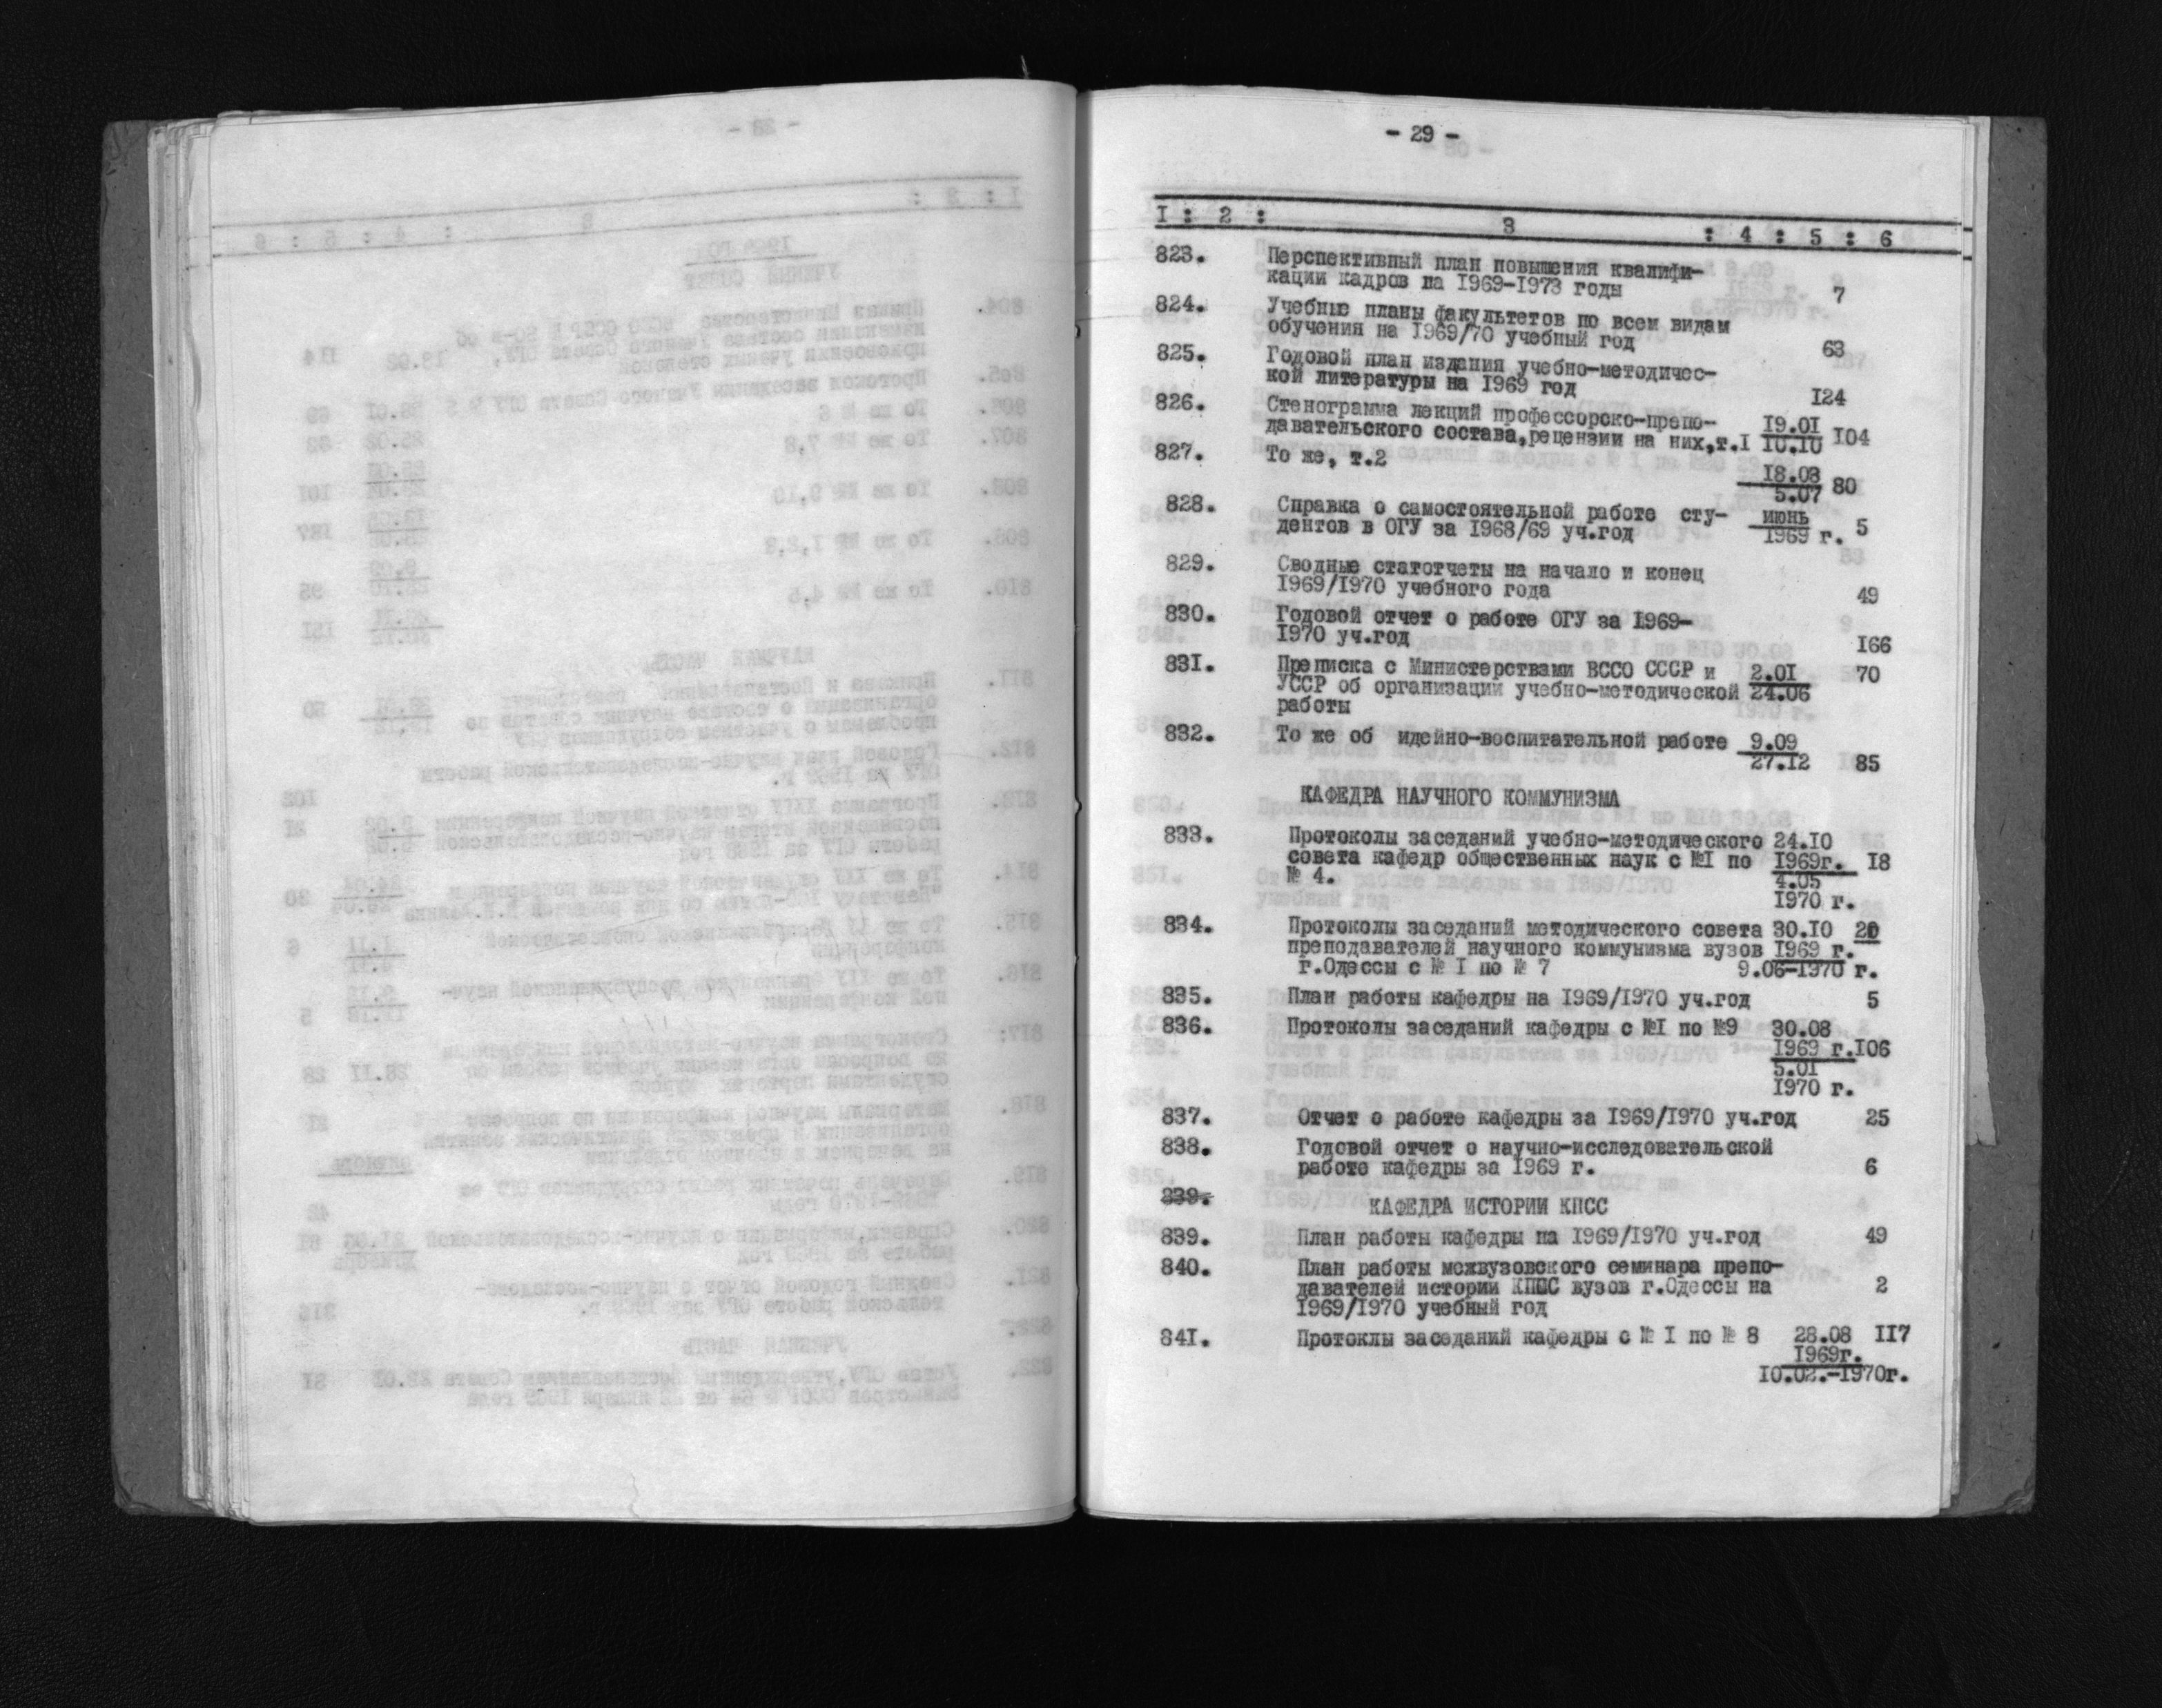 - 29 -
I : 2 : 3 : 4 : 5 : 6
823. Перспективный план повышения квалифи-
кации кадров на 1969-1973 годы 7
824. Учебные планы факультетов по всем видам
обучения на 1969/70 учебный год 63
825. Годовой план издания учебно-методичес-
кой литературы на 1969 год 124
826. Стенограмма лекций профессорско-препо- 19.01
давательского состава,рецензии на них,т.I 10.10 104
827. То же, т.2 18.03
5.07 80
828. Справка о самостоятельной работе сту- июнь
дентов в ОГУ за 1968/69 уч.год 1969 г. 5
829. Сводные статотчеты на начало и конец
1969/1970 учебного года 49
830. Годовой отчет о работе ОГУ за 1969-
1970 уч.год 166
831. Преписка с Министерствами ВССО СССР и 2.01 70
УССР об организации учебно-методической 24.06
работы
832. То же об идейно-воспитательной работе 9.09
27.12 85
КАФЕДРА НАУЧНОГО КОММУНИЗМА
833. Протоколы заседаний учебно-методического 24.10
совета кафедр общественных наук с №I по 1969г. 18
№ 4. 4.05
1970 г.
834. Протоколы заседаний методического совета 30.10 20
преподавателей научного коммунизма вузов 1969 г.
г.Одессы с № I по № 7 9.06-1970 г.
835. План работы кафедры на 1969/1970 уч.год 5
836. Протоколы заседаний кафедры с №I по №9 30.08
1969 г. 106
5.01
1970 г.
837. Отчет о работе кафедры за 1969/1970 уч.год 25
838. Годовой отчет о научно-исследовательской
работе кафедры за 1969 г. 6
839. КАФЕДРА ИСТОРИИ КПСС
839. План работы кафедры на 1969/1970 уч.год 49
840. План работы межвузовского семинара препо-
давателей истории КПСС вузов г.Одессы на 2
1969/1970 учебный год
841. Протоклы заседаний кафедры с № I по № 8 28.08 117
1969г.
10.02.-1970г.